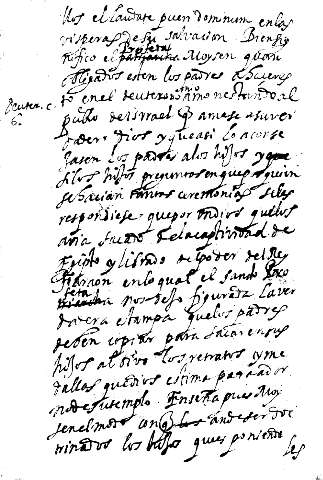 llos el laudate pueri dominum en las
visperas de su salvacion. Biensig
nifico el Propheta Moysen quan
obligados esten los padres a hacer es
to en el deuteronomio amonestando al
pueblo de israel q amase a su ver
dadero dios y que asi lo acorse
jasen los padres a los hijos y que
si los hijos preguntasen que por quien
se hacian tantas ceremonias se les
respondiese que por un dios que los
avia sacado de la captividad de
Egipto y librado de poder del Rey
Pharaon en lo qual el sancto Pro
feta nos dejo figurada la ver
dadera estampa que los padres
deben copiar para sacar en sus
hijos al vivo los retratos y me
dallas que dios estima para ador
no de su templo. Enseña pues Moy
sen el modo con q los an de ser doc
trinados los hijos que es poniendo
les
Deuter. c.
6.